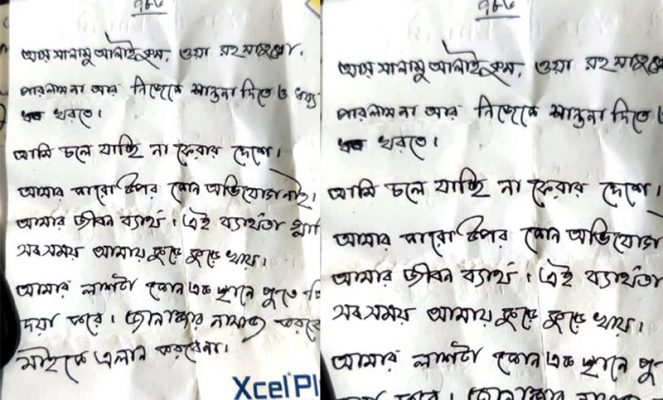 ৭৮৬
আস সালামু আলাইকুম, ওয়া রহমাতুল্লাহ
পারলাম না আর নিজেকে শান্তনা দিতে ও ধৈর্য
ধরতে।
আমি চলে যাচ্ছি না ফেরার দেশে।
আমার কারো উপর কোন অভিযোগ নাই।
আমার জীবন ব্যার্থ। এই ব্যার্থতা
সব সময় আমায় কুড়ে কুড়ে খায়।
আমার লাশটা কোন এক স্থানে পুতে
দয়া করে। জানাজার নামাজ করবে
মাইকে এলান করবেনা।
Xcel Pl
৭৮৬
আস সালামু আলাইকুম, ওয়া রহমাতুল্লাহ
পারলাম না আর নিজেকে শান্তনা দিতে
ধরতে।
আমি চলে যাচ্ছি না ফেরার দেশে।
আমার কারো উপর কোন অভিযোগ
আমার জীবন ব্যার্থ। এই ব্যার্থতা
সব সময় আমায় কুড়ে কুড়ে খায়।
আমার লাশটা কোন এক স্থানে পু